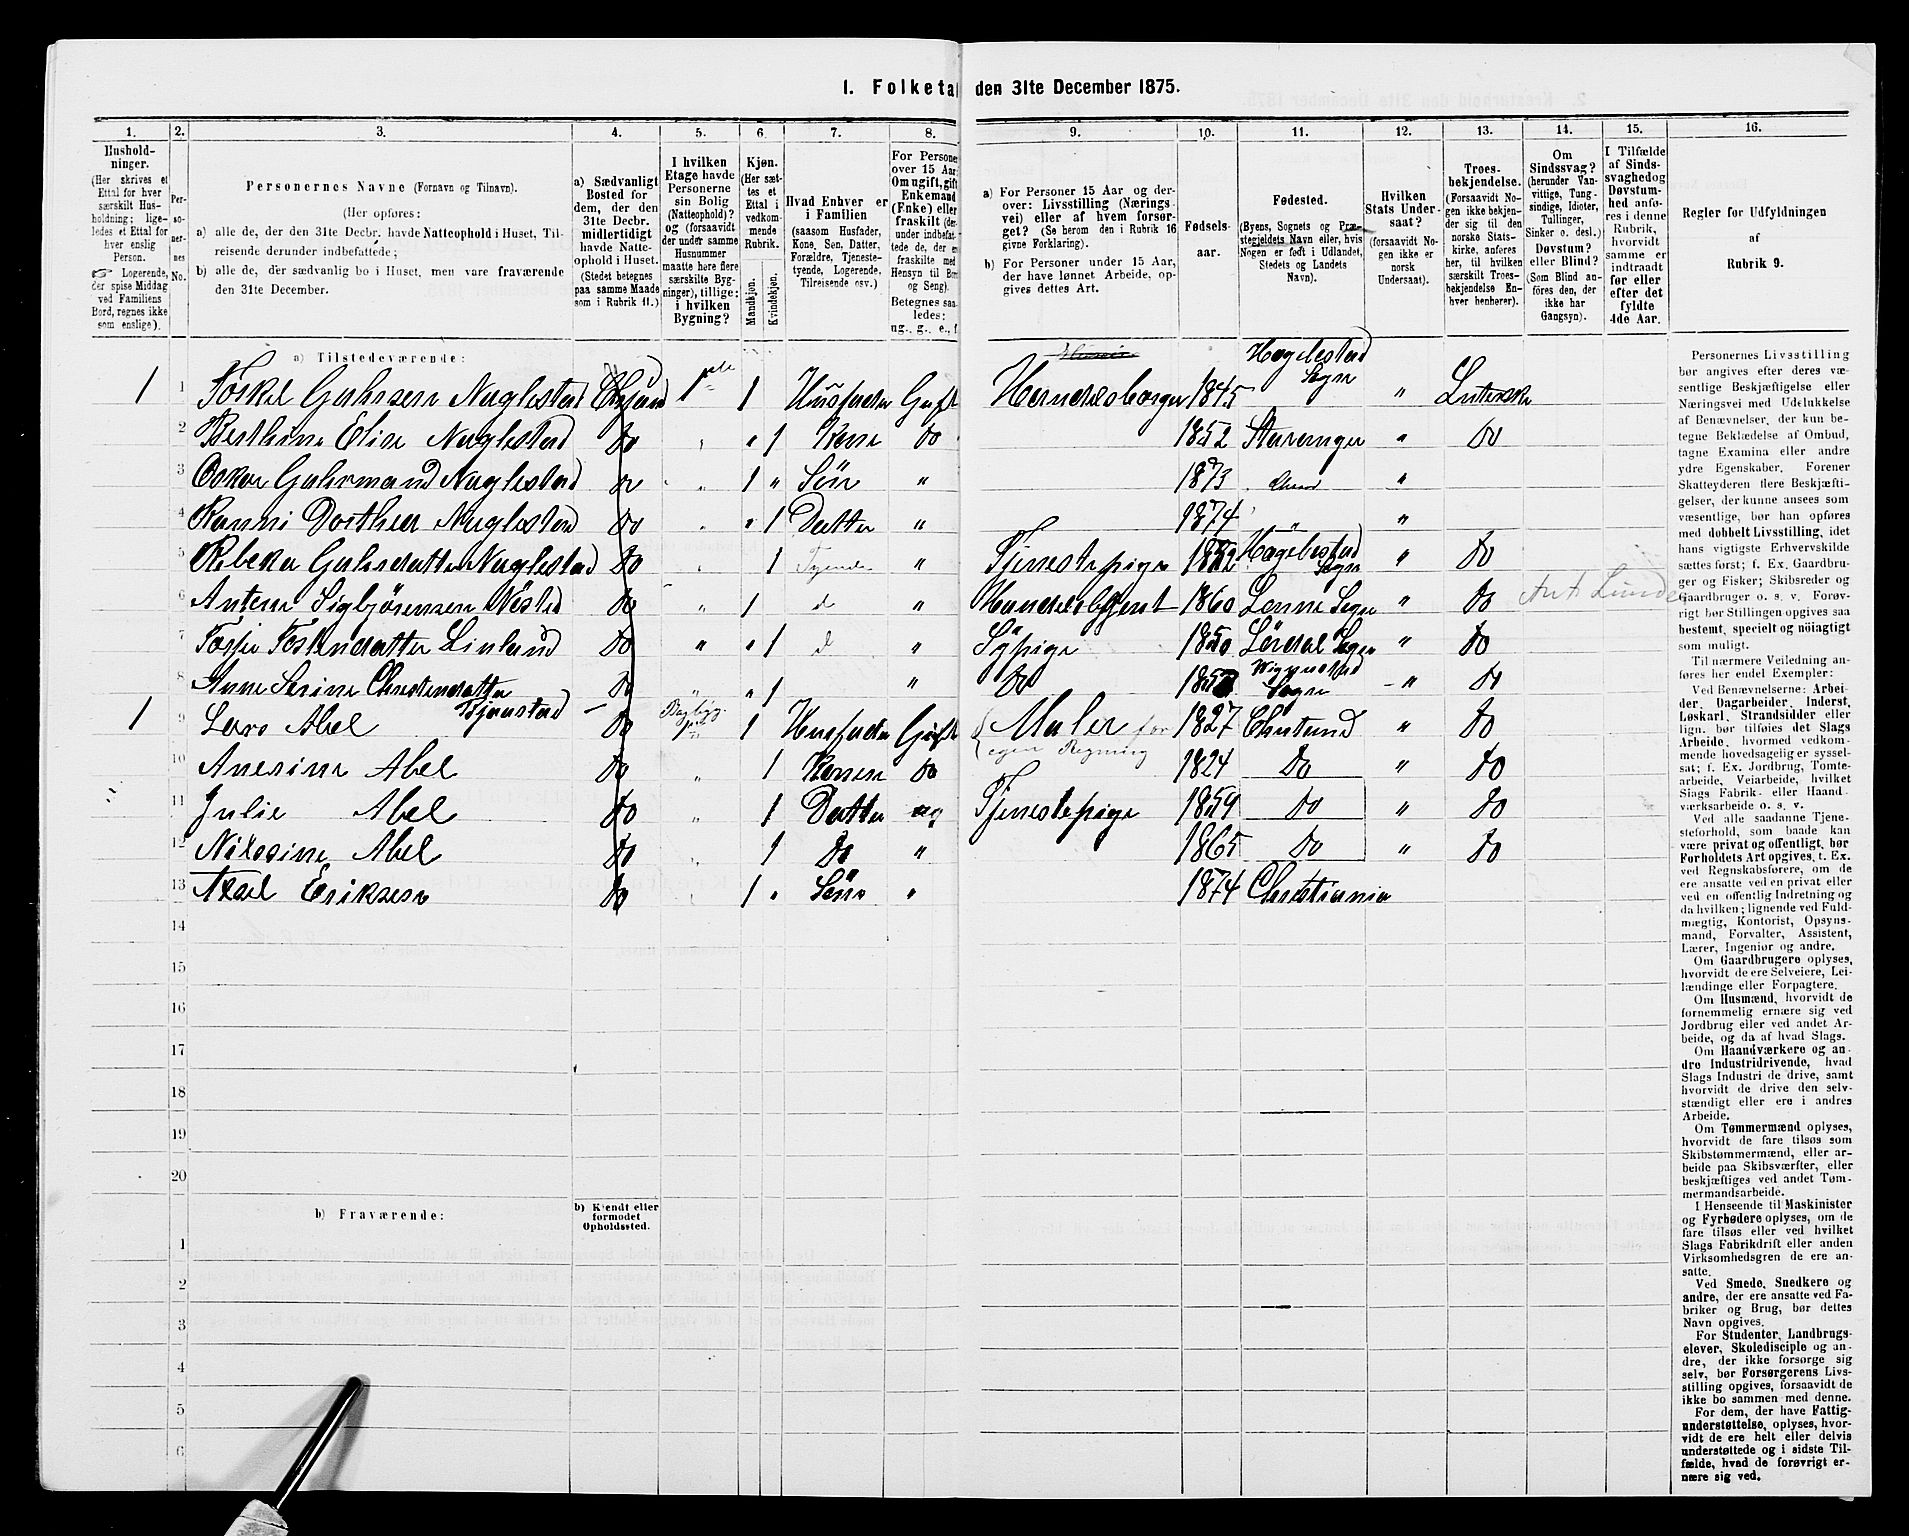 1. Folketa den 31te December 1875.
1. 2. 3. 4. 5. 6. 7. 8. 9. 10. 11. 12. 13. 14. 15. 16.
Hushold-
ninger.
(Her skrives et
Ettal for hver
særskilt Hus-
holdning; lige-
ledes et Ettal for
hver enslig
Person.
☞ Logerende,
der spise Middag
ved Familiens
Bord, regnes ikke
som enslige).
Per-
so-
ner-
nes
No.
Personernes Navne (Fornavn og Tilnavn).
(Her opføres:
a) alle de, der den 31te Decbr. havde Natteophold i Huset, Til-
reisende derunder indbefattede;
b) alle de, der sædvanlig bo i Huset, men vare fraværende
den 31te December.
a) Sædvanligt
Bosted for
dem, der den
31te Decbr.
midlertidigt
havde Natte-
ophold i Huset.
(Stedet betegnes
paa samme Maade
som i Rubrik 11.)
I hvilken
Etage havde
Personerne
sin Bolig
(Natteophold)?
og (forsaavidt
der under samme
Husnummer
maatte høre flere
særskilte Byg-
ninger), tillige:
i hvilken
Bygning?
Kjøn.
(Her sæt-
tes et
Ettal i
vedkom-
mende
Rubrik.
Mandkjøn.
Kvindekjøn.
Hvad Enhver er
i Familien
(saasom Husfader,
Kone, Søn, Datter,
Forældre, Tjeneste-
tyende, Logerende,
Tilreisende osv.)
For Persone
over 15 Aar
Om ugift, gift
Enkemand
(Enke) eller
fraskilt (der-
under indbefat-
tede de, der e
fraskilte med
Hensyn til Bo
og Seng).
Betegnes saa-
ledes:
ug., g., e., f
a) For Personer 15 Aar og der-
over: Livsstilling (Nærings-
vei) eller af hvem forsør-
get? (Se herom den i Rubrik 16
givne Forklaring).
b) For Personer under 15 Aar,
der have lønnet Arbeide, op-
gives dettes Art.
Fødsels-
aar.
Fødested.
(Byens, Sognets og Præ-
stegjeldets Navn eller, hvis
Nogen er født i Udlandet,
Stedets og Landets
Navn).
Hvilken
Stats Under-
saat?
(forsaavidt No-
gen ikke er
norsk
Undersaat).
Troes-
bekjendelse.
(Forsaavidt No-
gen ikke bekjen-
der sig til den
norske Stats-
kirke, anføres
her, til hvilken
særskilt Troes-
bekjendelse En-
hver henhører).
Om
Sindssvag?
(herunder Van-
vittige, Tung-
sindige, Idioter,
Tullinger,
Sinker o. desl.)
Døvstum?
eller Blind?
(Som Blind an-
föres den, der
ikke har
Gangsyn).
I Tilfælde
af Sinds-
svaghed og
Døvstum-
hed anfø-
res i denne
Rubrik,
hvorvidt
samme er
indtraadt
før eller
efter det
fyldte
4de Aar.
Regler for Udfyldningen
af
Rubrik 9.
a) Tilstedeværende:
Hægebestad
1 1 Toskel Gahrsen Nuglestad Chrsand 1ste 1 Husfader Gift Handelsborger 1845 Sogn " Luterske
2 Berthine Elise Nuglestad do " " 1 Kone do 1852 Stavanger " do
3 Oskar Gahrmand Nuglestad do " 1 " Sön " 1873 Chrsand "
4 Ranni Dorthea Nuglestad do " " 1 Datter " 1874 " "
5 Rebeka Gahrsdatter Nuglestad do " 1 Tyende " Tjenestepige 1852 Hægebestad Sogn " do
6 Anton Sigbjörensen Nösted do " 1 d " Handelsbetjent 1860 Sogn " do
7 Linlund do " " 1 d " Sypige 1850 Sogn " do
8 Anne Serine Christensdatter Tjomstad do " 1 " do Sogn " do
1 9 Lars Abel do Bagbyg. 1 Husfader Gift Maler for 1827 Chrsund " do
egen Regning
10 Anesine Abel do " 1 Konen do 1824 do " do
11 Julie Abel do " 1 Datter ug Tjenestepige 1859 do " do
12 Nilssine Abel do " 1 do " 1865 do " do
13 Axel Eriksen do 1 " Sön " 1874 Christiania
14
15
16
17
18
19
20
b) Fraværende:
b) Kjendt eller
formodet
Opholdssted.
1
2
3
4
5
6
Personernes Livsstilling
bør angives efter deres væ-
sentlige Beskjæftigelse eller
Næringsvei med Udelukkelse
af Benævnelser, der kun be-
tegne Beklædelse af Ombud,
tagne Examina eller andre
ydre Egenskaber. Forener
Skatteyderen flere Beskjæfti-
gelser, der kunne ansees som
væsentlige, bør han opføres
med dobbelt Livsstilling, idet
hans vigtigste Erhvervskilde
sættes først; f. Ex. Gaardbru-
ger og Fisker; Skibsreder og
Gaardbruger o. s. v. Forøv-
rigt bør Stillingen opgives saa
bestemt, specielt og nöiagtigt
som muligt.
Til nærmere Veiledning an-
føres her endel Exempler:
Ved Benævnelserne: Arbei-
der, Dagarbeider, Inderst,
Løskarl, Strandsidder eller
lign. bør tilføies det Slags
Arbeide, hvormed vedkom-
mende hovedsagelig er syssel-
sat; f. Ex. Jordbrug, Tomte-
arbeide, Veiarbeide, hvilket
Slags Fabrik- eller Haand-
værksarbeide o. s. v.
Ved alle saadanne Tjene-
steforhold, som baade kan
være privat og offentligt, bør
Forholdets Art opgives, t. Ex.
ved Regnskabsførere, om de
ere ansatte ved en privat eller
ved en offentlig Indretning og
da hvilken; lignende ved Fuld-
mægtig, Kontorist, Opsyns-
mand, Forvalter, Assistent,
Lærer, Ingeniør og andre.
Om Gaardbrugere oplyses,
hvorvidt de ere Selveiere, Lei-
lændinge eller Forpagtere.
Om Husmænd, hvorvidt de
fornemmelig ernære sig ved
Jordbrug eller ved andet Ar-
beide, og da af hvad Slags.
Om Haandværkere og an-
dre Industridrivende, hvad
Slags Industri de drive, samt
hvorvidt de drive den selv-
stændigt eller ere i andres
Arbeide.
Om Tømmermænd oplyses,
hvorvidt de fare tilsøs som
Skibstømmermænd, eller ar-
beide paa Skibsværfter, eller
beskjæftiges ved andet Tøm-
mermandsarbeide.
I Henseende til Maskinister
og Fyrbødere oplyses, om de
fare tilsøs eller ved hvilket
Slags Fabrikdrift eller anden
Virksomhedsgren de ere an-
satte.
Ved Smede, Snedkere og
andre, der ere ansatte ved Fa-
briker og Brug, bør dettes
Navn opgives.
For Studenter, Landbrugs-
elever, Skoledisciple og an-
dre, der ikke forsørge sig
selv, bør Forsørgerens Livs-
stilling opgives, forsaavidt de
ikke bo sammen med denne.
For dem, der have Fattig-
understøttelse, oplyses, hvor-
vidt de ere helt eller delvis
understøttede og i sidste Til-
fælde, hvad de forøvrigt er-
nære sig ved.